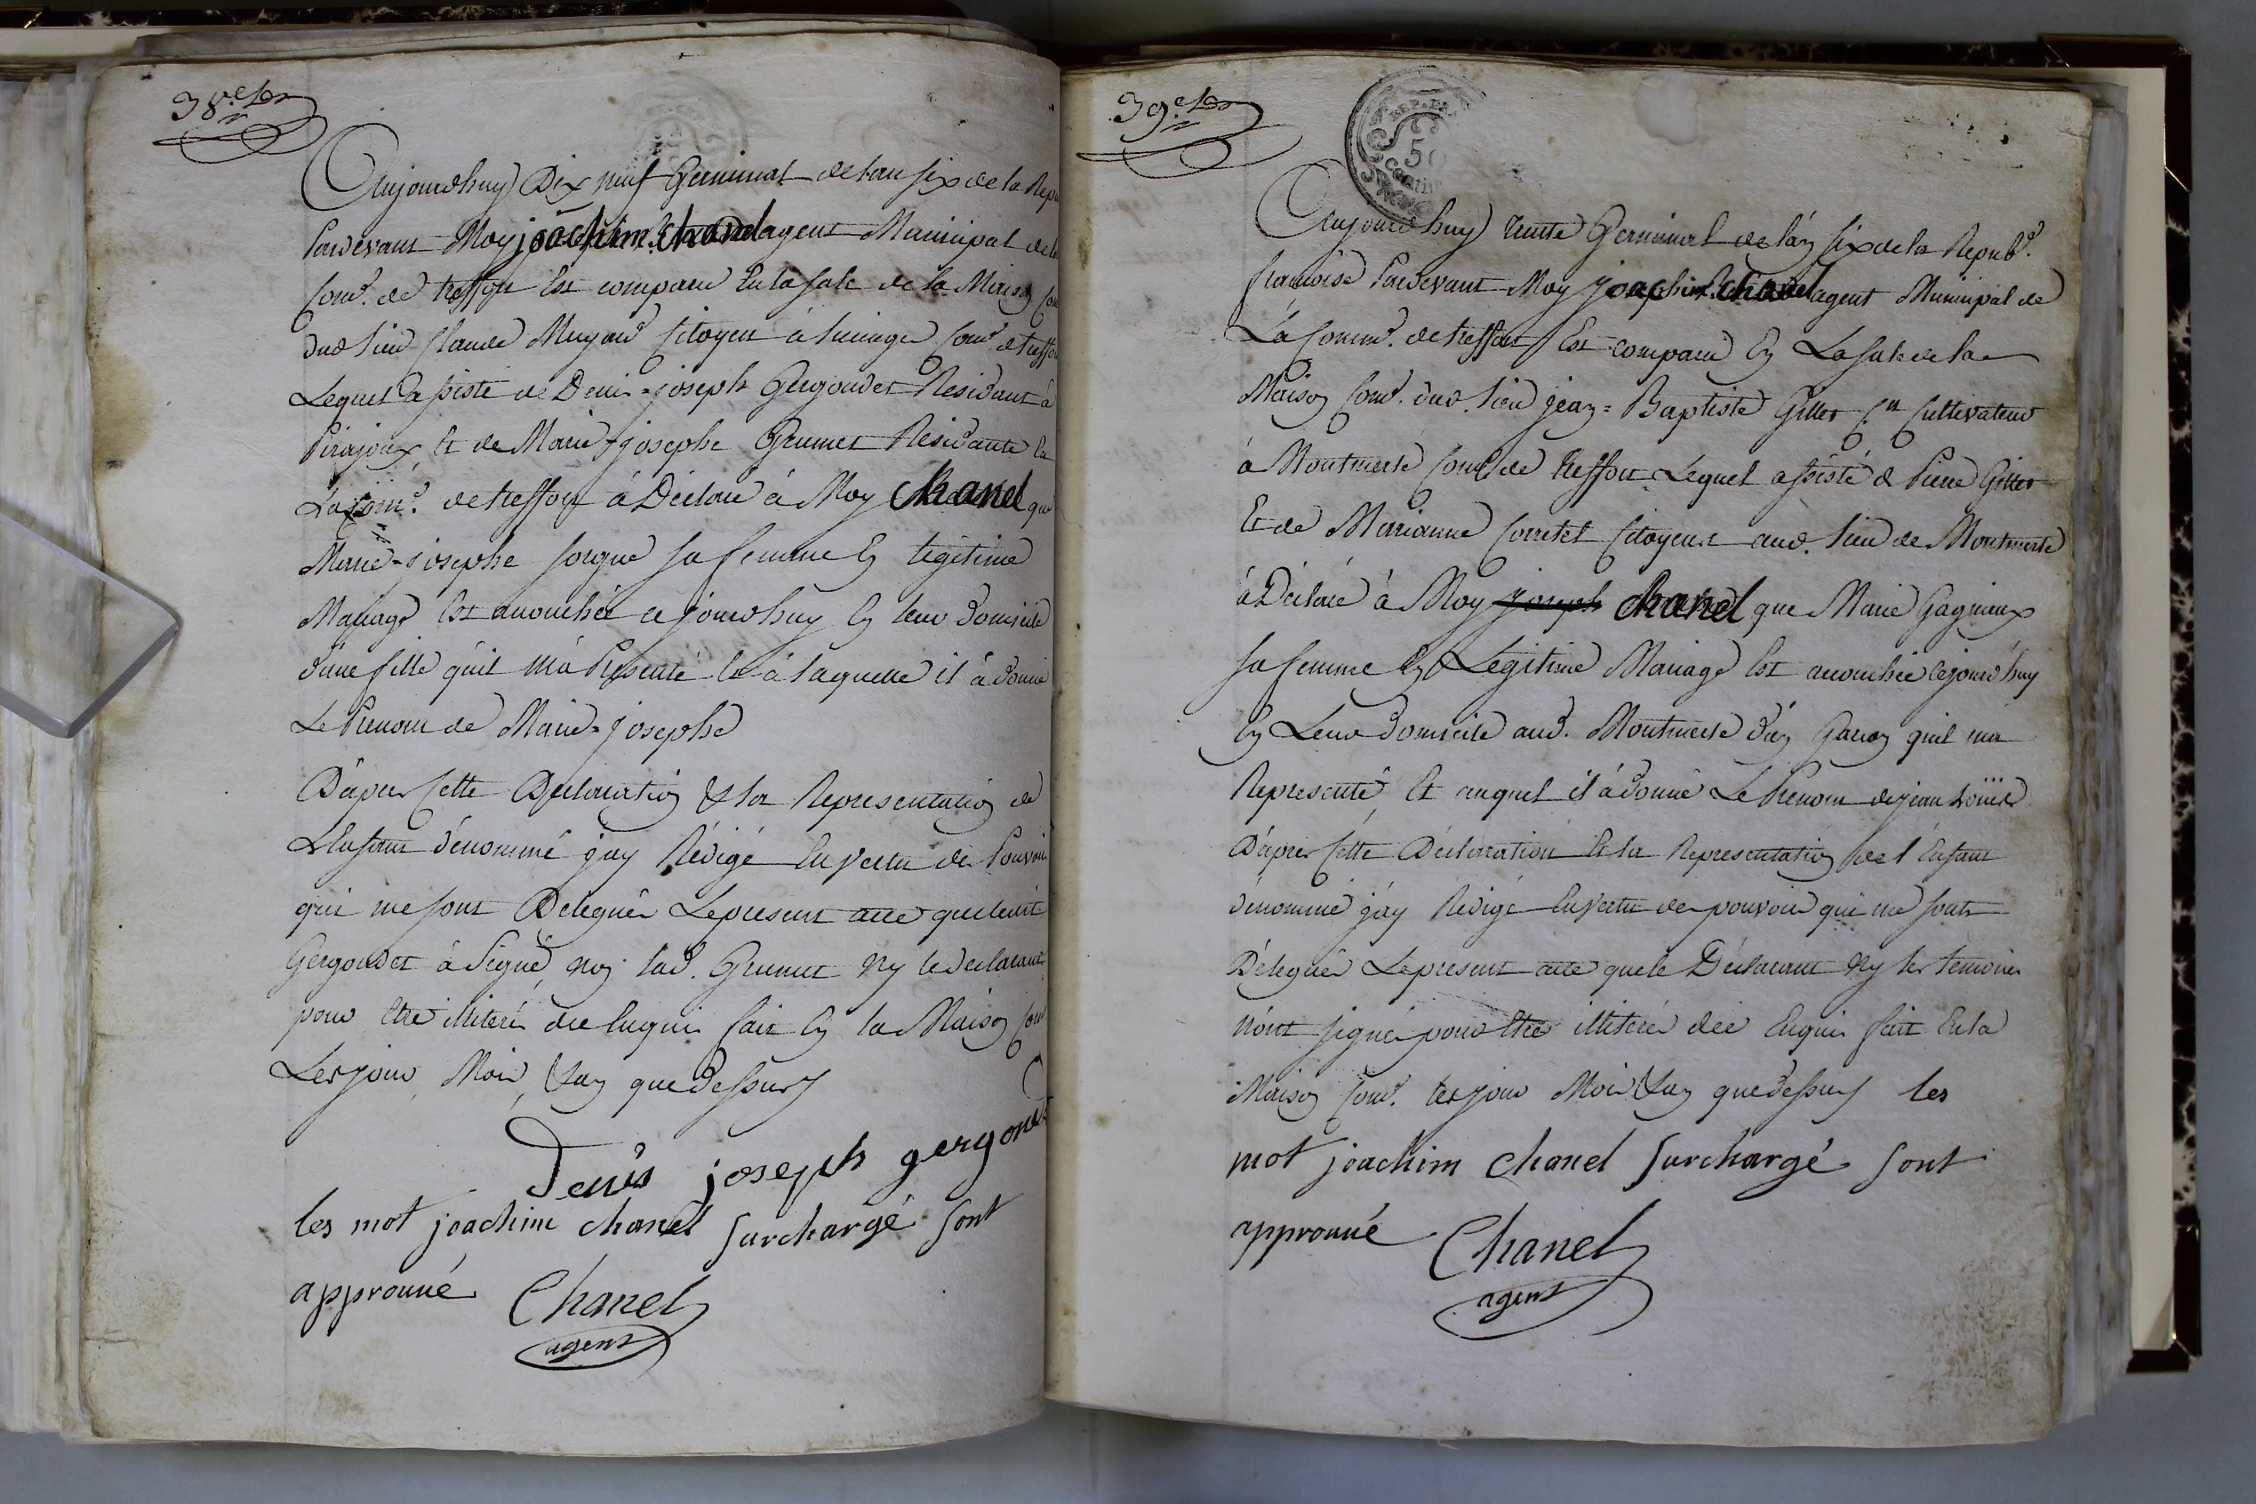 38.e
Aujourdhuy Dix neuf Germinal de lan six de la Repu
Pardevant Moy joachim chanel agent Municipal de la
Com.e de treffort Est comparu En la sale de la Maison Com
dud lieu Claude Citoyen à Com.e de treffort
Lequel assisté de Denis-joseph Gergoudet Residant à
Pirajoux, Et de Marie-josephe Grumet Residante En
La Com.e de treffort à Déclaré à Moy Chanel que
Marie-josephe sorgue sa femme En legitime
Mariage Est accouchée ce jourdhuy En leur Domicile
d'une fille qu'il m'a Presenté Et à laquelle il à donné
Le Prenom de Marie-josephe
D'apres Cette Declaration & la Representation de
L'Enfant dénommé j'ay Rédigé En vertu des Pouvoirs
qui me sont Delegués Le present acte que ledit
Gergoudet à Signé, non lad. Grumet Ny le declarant
pour Etre illiteré de ce Enquis fait En la Maison Com
Les jour, Mois, & an que dessus
Denis joseph gergoudet
les mot joachim chanel surchargé sont
approuué Chanel
agent
39.e
REP. FRA
50
Centi
Aujourdhuy trente Germinal de l'an six de la Repub.e
francoise Pardevant Moy joachim chanel agent Municipal de
La Comm.e de treffort Est comparu En La sale de la
Maison Com.e dud. lieu jean=Baptiste Gillet C.en Cultivateur
à Montmerle Com.e de treffort Lequel assisté de Pierre Gillet
Et de Marianne Corretet Citoyens aud. lieu de Montmerle
à Déclaré à Moy joseph chanel que Marie Gagnieux
sa femme En Legitime Mariage Est accouchée cejourdhuy
En Leur Domicile aud. Montmerle d'un Garcon quil ma
Representé, Et auquel il à donné Le Prenom de jean Loüis
D'apres Cette Déclaration Et la Representation de l'Enfant
dénommé j'ay Rédigé En vertu des pouvoirs qui me sont
Délegués Le present acte que le Déclarant Ny les temoins
n'ont signé pour Etre illiteré de ce Enquis fait En la
Maison Com.e les jour Mois & an que dessus les
mot joachim chanel surchargé sont
approuué Chanel
agent